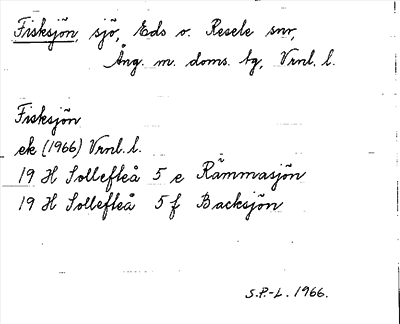 Fisksjön, sjö, Eds o. Resele snr,
Ång. m. doms. tg, Vrnl. l.
Fisksjön
ek (1966) Vrnl. l.
19 H Sollefteå 5 e Råmmasjön
19 H Sollefteå 5 f Backsjön
S.P.-L. 1966.